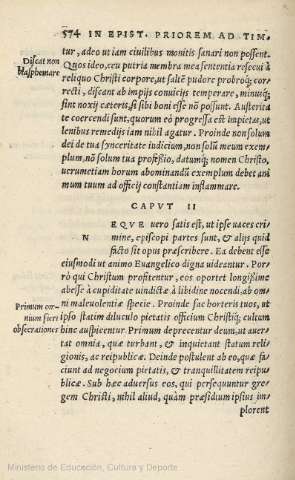 574 IN EPIST. PRIOREM AD TIM-
tur, adeo ut iam ciuilibus monitis sanari non possent.
Discat non
blasphemare
Quos ideo, ceu putria membra mea sententia resecui à
reliquo Christi corpore, ut saltē pudore probroq́; cor-
recti, discant ab impijs conuicijs temperare, minusq́;
sint noxij cæteris, si sibi boni esse nō possunt. Austerita
te coercendi sunt, quorum eò progressa est impietas, ut
lenibus remedijs iam nihil agatur. Proinde non solum
dei de tua synceritate iudicium, non solū meum exem-
plum, nō solum tua professio, datumq́; nomen Christo,
uerumetiam horum abominandū exemplum debet ani
mum tuum ad officij constantiam inflammare.
CAPVT II
N EQVE uero satis est, ut ipse uaces cri
mine, episcopi partes sunt, & alijs quid
facto sit opus præscribere. Ea debent esse
eiusmodi ut animo Euangelico digna uideantur. Por-
rò qui Christum profitentur, eos oportet longissime
abesse à cupiditate uindictæ à libidine nocendi. ab om-
ni maleuolentiæ specie. Proinde sac horteris tuos, ut
Primum cor-
nium fieri
obsecrationes
ipso statim diluculo pietatis officium Christiq́; cultum
hinc auspicentur. Primum deprecentur deum, ut auer-
tat omnia, quæ turbant, & inquietant statum reli-
gionis, ac reipublicæ. Deinde postulent ab eo, quæ fa-
ciunt ad negocium pietatis, & tranquillitatem reipu-
blicæ. Sub hæc aduersus eos, qui persequuntur gre-
gem Christi, nihil aliud, quàm præsidium ipsius im-
plorent
Ministerio de Educación, Cultura y Deporte